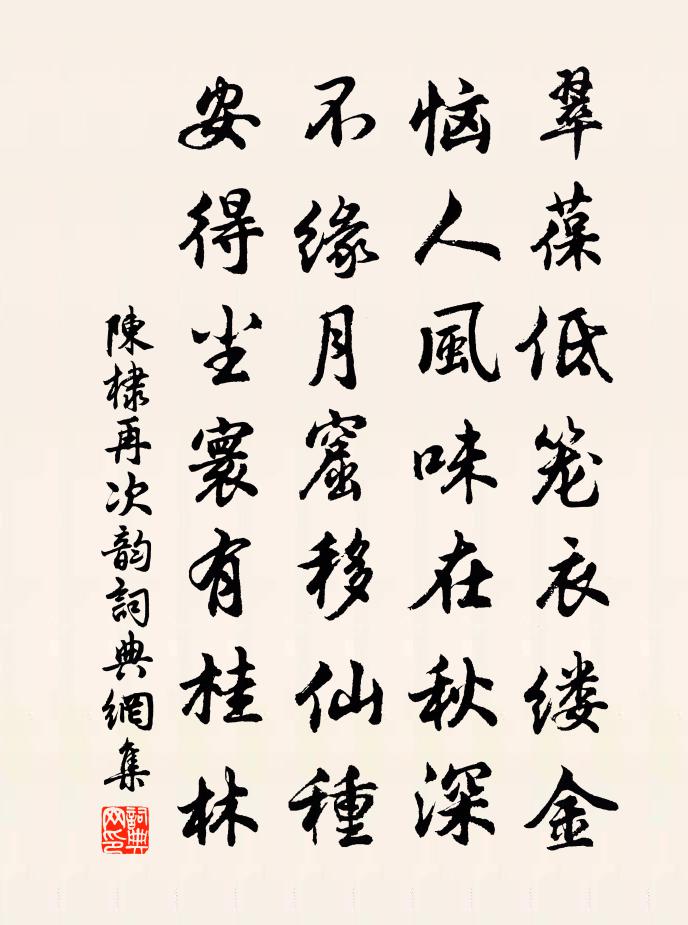 翠葆低笼衣缕金
恼人風味在秋深
不缘月窟移仙種
安得尘寰有桂林
陳棣再次韵詞典網集
詞典
网印